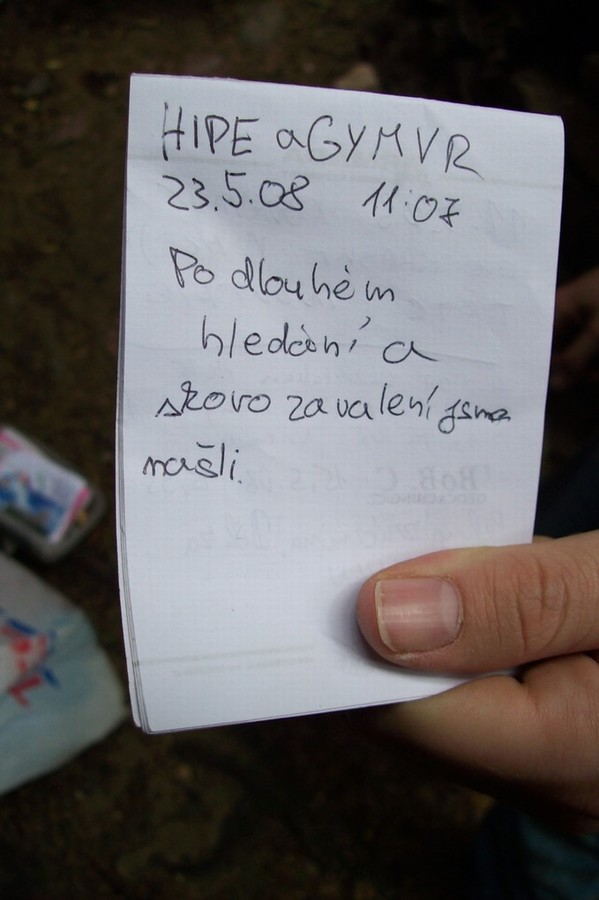 HIPE a GYMVR
23.5.08 11:07
Po dlouhém
hledání a
skovo zavalení jsme
našli.